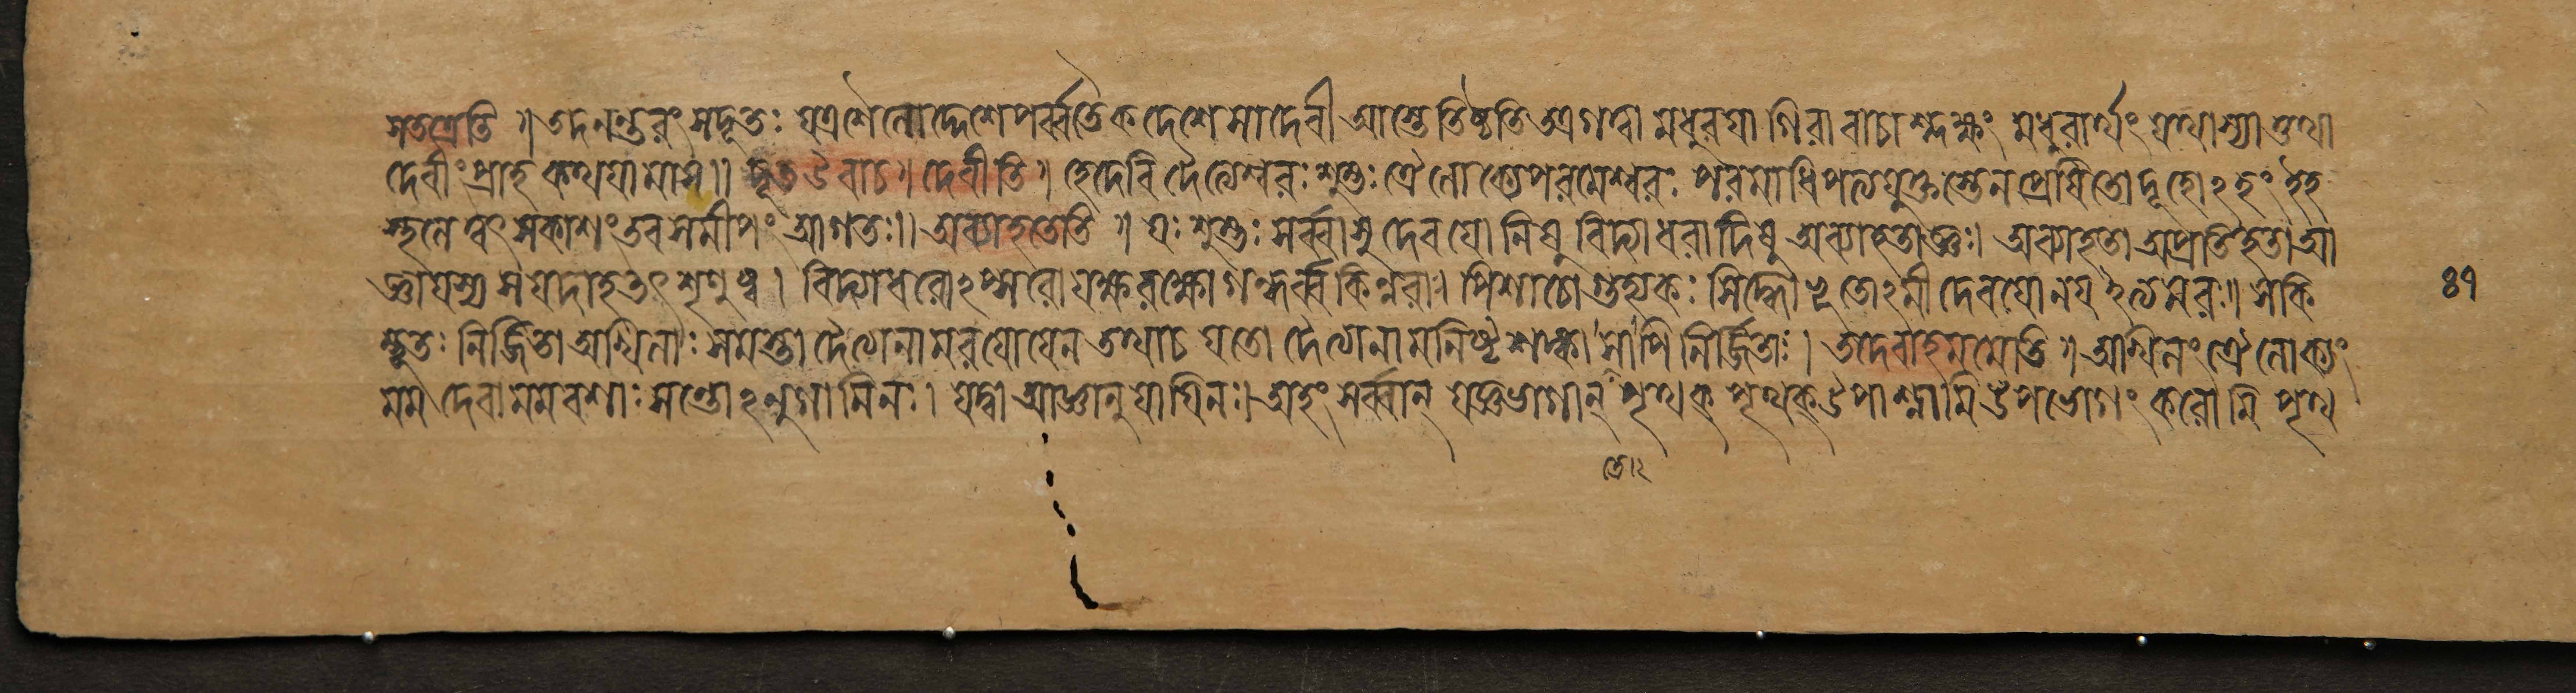 সতত্রেতি ॥ তদনন্তরং সদূতঃ যত্রশৈলোদ্দেশেপর্ব্বতৈকদেশেসাদেবী আস্তেতিষ্ঠতি তত্রগত্বা মধুরযা গিরাবাচাশ্লক্ষ্ণং মধুরার্থং যথাস্যাত্তথা
দেবীংপ্রাহ কথযামাস॥ দূত উবাচ॥ দেবীতি॥ হেদেবি দৈত্যেশ্বরঃ শুম্ভঃ ত্রৈলোক্যেপরমেশ্বরঃ পরমাধিপত্যযুক্তস্তেনপ্রেষিতোদূতোঽহং ইহ
স্থলে ত্বৎসকাশংতবসমীপং আগতঃ॥ অব্যাহতেতি ॥ যঃ শুম্ভঃ সর্ব্বাসু দেবযোনিষু বিদ্যাধরাদিষু অব্যাহতাজ্ঞঃ। অব্যাহতা অপ্রতিহতাআ
জ্ঞাযস্য সযদাহতৎ শৃণুষ্ব। বিদ্যাধরোঽপ্সরোযক্ষরক্ষোগন্ধর্ব্বকিন্নরাঃ। পিশাচোগুহ্যকঃ সিদ্ধো ভূতোঽমী দেবযোনয ইত্যমরঃ॥ সকি
ম্ভূতঃ নির্জ্জিতা অখিলাঃ সমস্তা দৈত্যানামরযোযেন তথাচ যতো দৈত্যানামনিষ্ট শঙ্কা সাপি নির্জ্জিতাঃ। তদেবাহমমেতি॥ অখিলং ত্রৈলোক্যং
মম দেবামমবশাঃ সন্তোঽনুগামিনঃ। যদ্বা আজ্ঞানুযাযিনঃ। অহং সর্ব্বান্ যজ্ঞভাগান্ পৃথক্ পৃথক্উপাশ্নামি উপভোগং করোমি পৃথ
৪৭
তোঽ